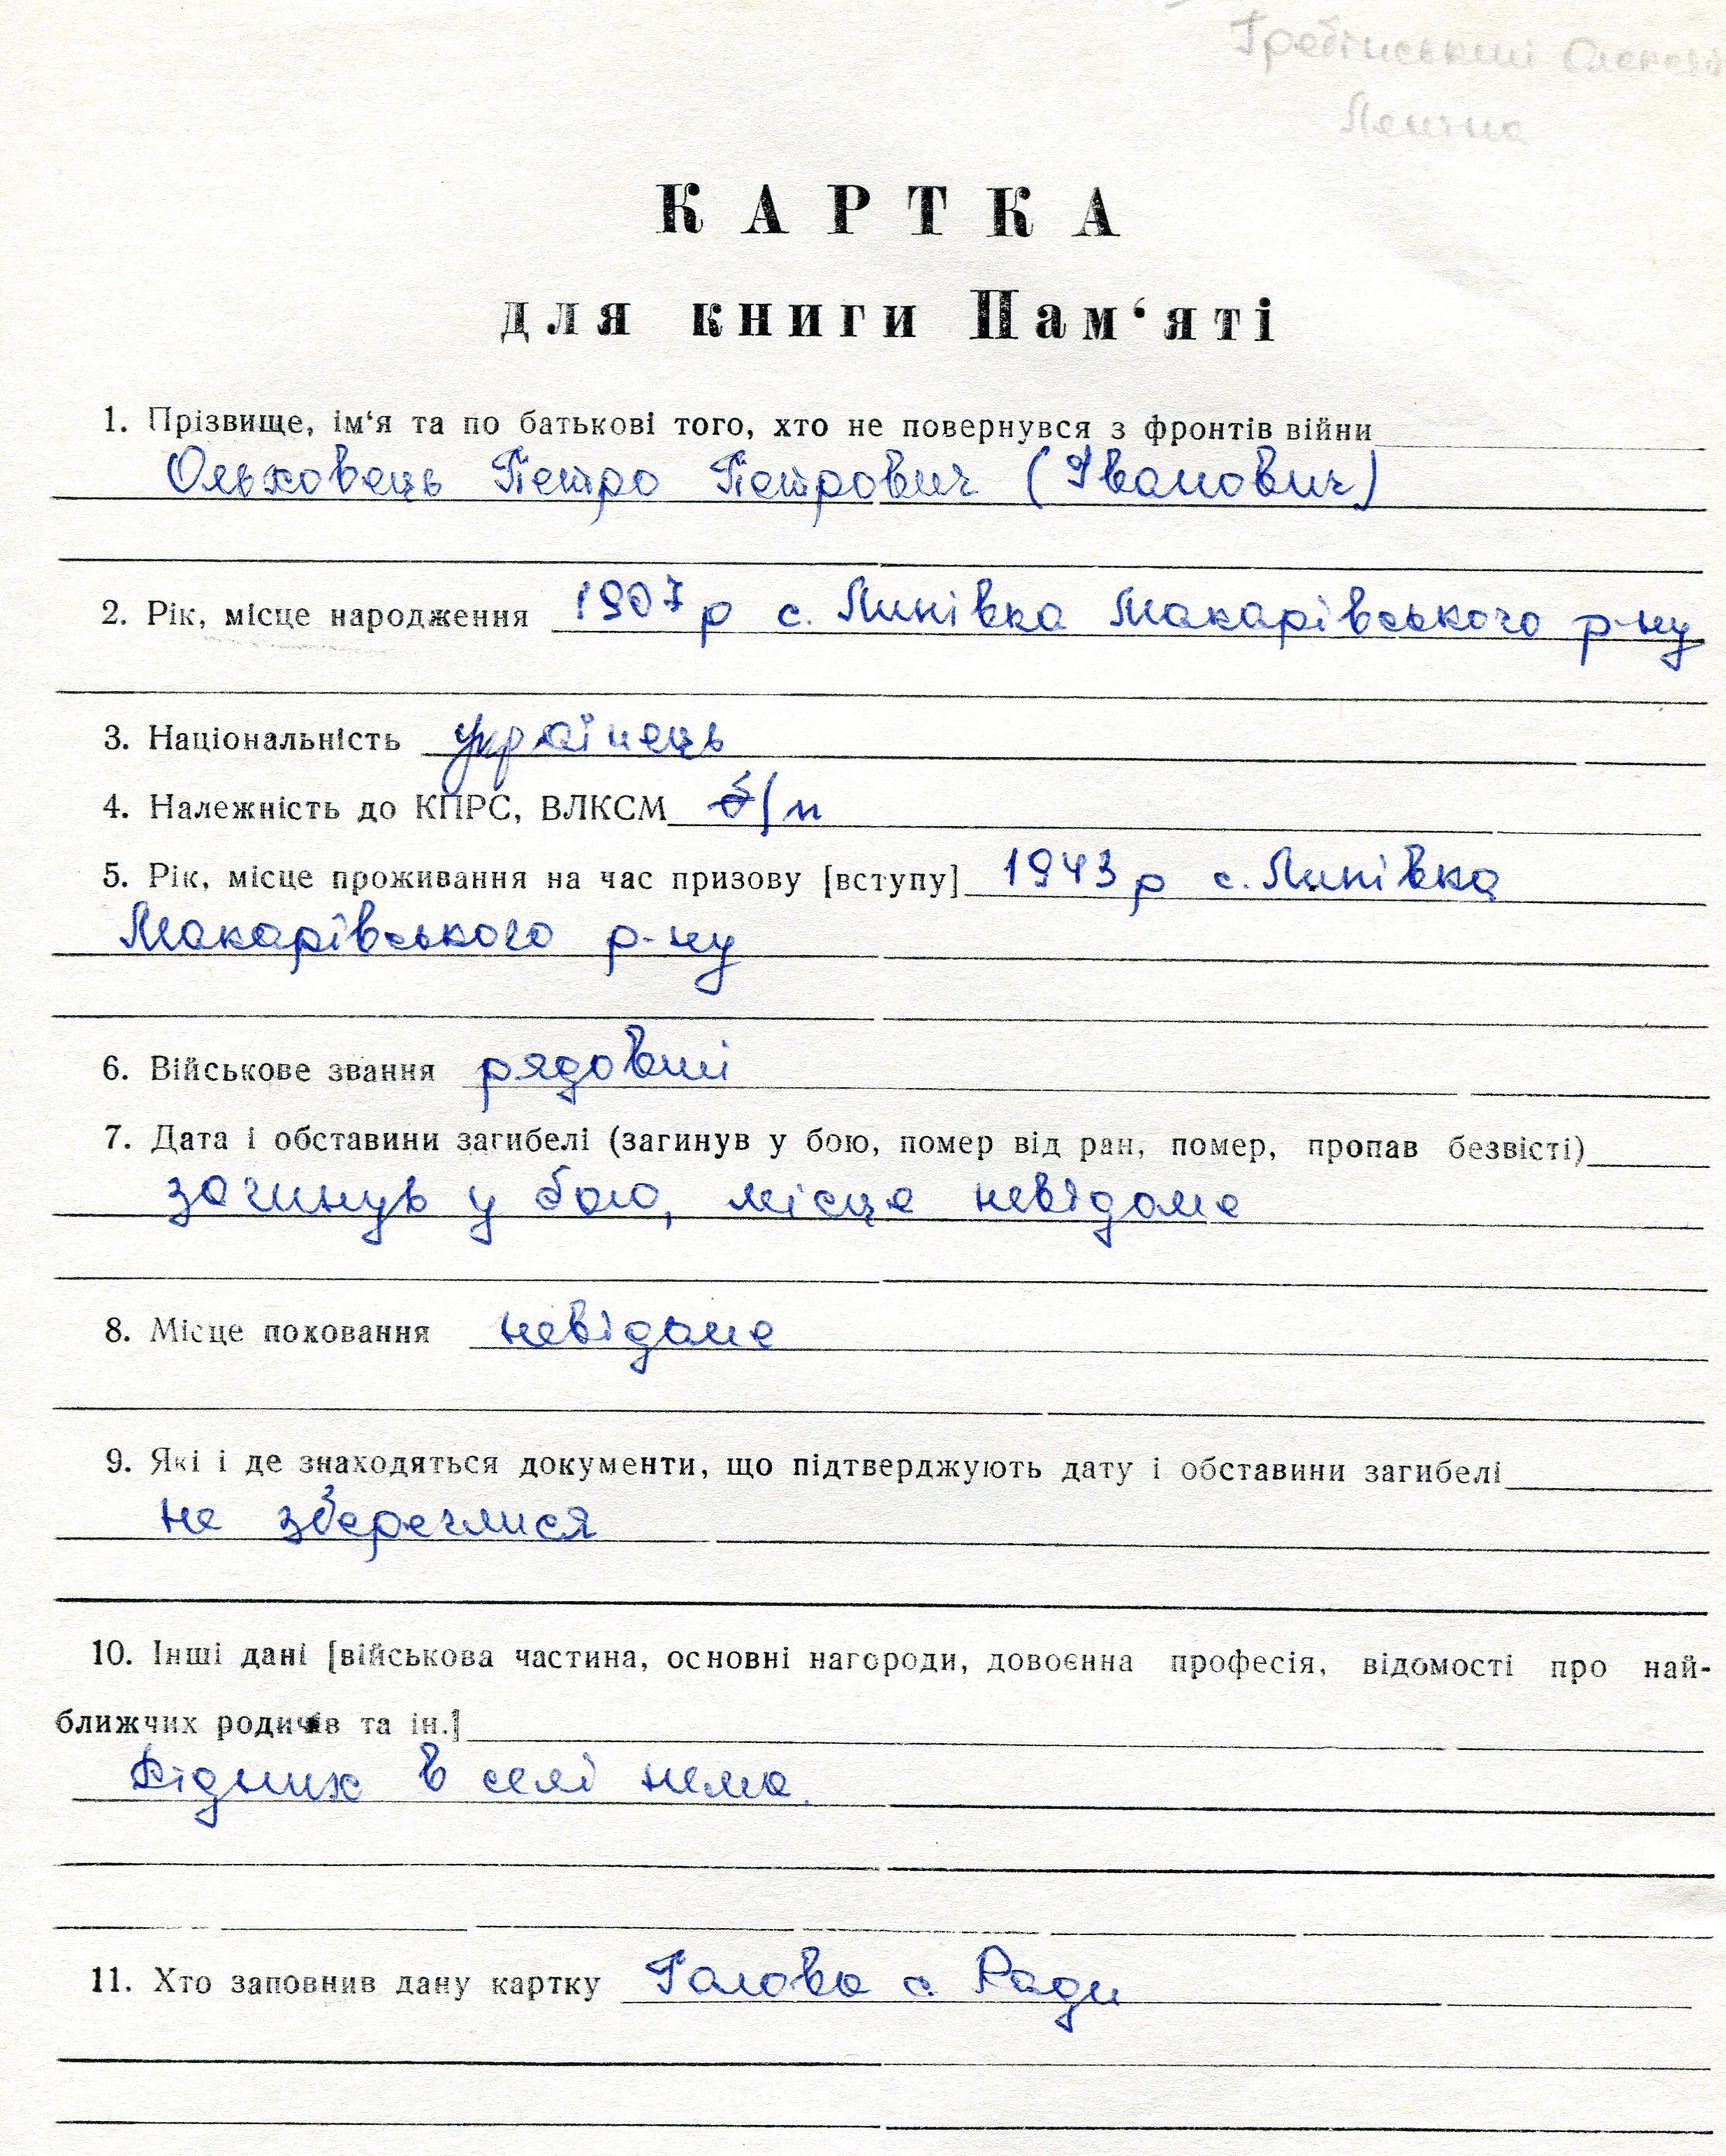 Гребінський
К А Р Т К А
для книги Пам‘яті
1. Прізвище, ім‘я та по батькові того, хто не повернувся з фронтів війни
Ольховець Петро Петрович (Іванович)
2. Рік, місце народження 1907 р с. Липівка Макарівського р-ну
3. Національність українець
4. Належність до КПРС, ВЛКСМ б/п
5. Рік, місце проживання на час призову [вступу] 1943 р с. Липівка
Макарівського р-ну
6. Військове звання рядовий
7. Дата і обставини загибелі (загинув у бою, помер від ран, помер, пропав безвісті)
загинув у бою, місце невідоме
8. Місце поховання невідоме
9. Які і де знаходяться документи, що підтверджують дату і обставини загибелі
не збереглися
10. Інші дані [військова частина, основні нагороди, довоєнна професія, відомості про най-
ближчих родичів та ін.]
Рідних в селі нема.
11. Хто заповнив дану картку Голова с. Ради